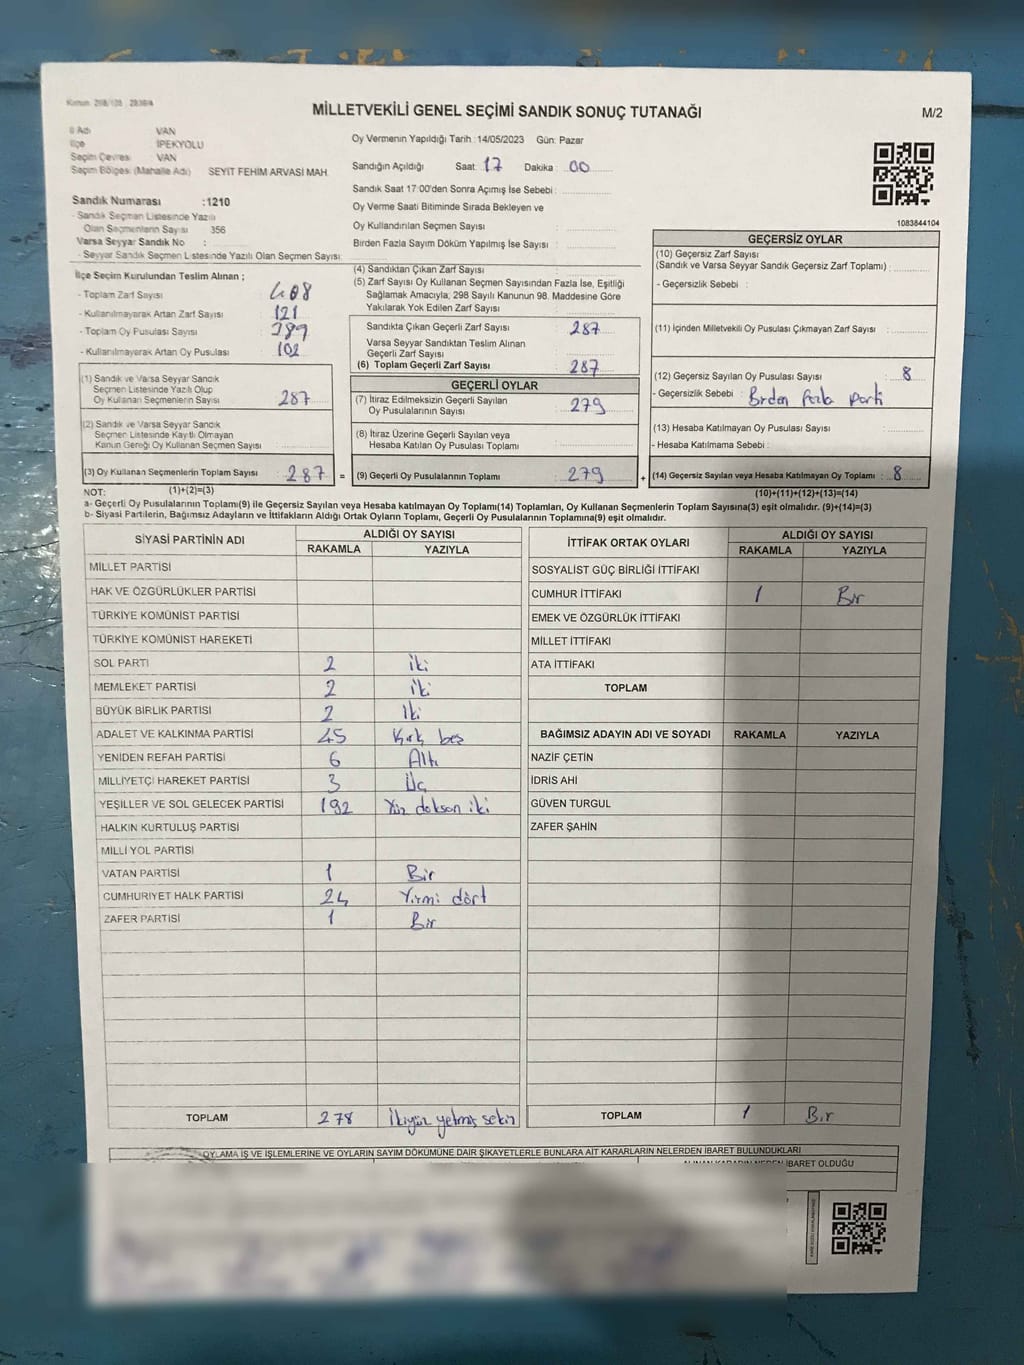 MİLLETVEKİLİ GENEL SEÇİMİ SANDIK SONUÇ TUTANAĞI
M/2
İl Adı VAN
İlçe İPEKYOLU
Seçim Çevres VAN
Seçim Bölges (Mahalle Adı) SEYİT FEHİM ARVASİ MAH.
Sandık Numarası :1210
- Sandık Seçmen Listesinde Yazılı
Olan Seçmenlerin Sayısı 356
Varsa Seyyar Sandık No :
- Seyyar Sandık Seçmen Listesinde Yazılı Olan Seçmen Sayısı:
Oy Vermenin Yapıldığı Tarih :14/05/2023 Gün: Pazar
Sandığın Açıldığı Saat: 17 Dakika : 00
Sandık Saat 17:00'den Sonra Açımış İse Sebebi :
Oy Verme Saati Bitiminde Sırada Bekleyen ve
Oy Kullandırılan Seçmen Sayısı :
Birden Fazla Sayım Döküm Yapılmış İse Sayısı :
1083844104
İlçe Seçim Kurulundan Teslim Alınan ;
- Toplam Zarf Sayısı : 408
- Kullanılmayarak Artan Zarf Sayısı : 121
- Toplam Oy Pusulası Sayısı : 389
- Kullanılmayarak Artan Oy Pusulası : 102
(1) Sandık ve Varsa Seyyar Sandık
Seçmen Listesinde Yazılı Olup
Oy Kullanan Seçmenlerin Sayısı : 287
(2) Sandık ve Varsa Seyyar Sandık
Seçmen Listesinde Kayıtlı Olmayan
Kanun Gereği Oy Kullanan Seçmen Sayısı :
(3) Oy Kullanan Seçmenlerin Toplam Sayısı : 287 =
(1)+(2)=(3)
(4) Sandıktan Çıkan Zarf Sayısı :
(5) Zarf Sayısı Oy Kullanan Seçmen Sayısından Fazla İse, Eşitliği
Sağlamak Amacıyla, 298 Sayılı Kanunun 98. Maddesine Göre
Yakılarak Yok Edilen Zarf Sayısı :
Sandıkta Çıkan Geçerli Zarf Sayısı : 287
Varsa Seyyar Sandıktan Teslim Alınan
Geçerli Zarf Sayısı :
(6) Toplam Geçerli Zarf Sayısı : 287
GEÇERLİ OYLAR
(7) İtiraz Edilmeksizin Geçerli Sayılan
Oy Pusulalarının Sayısı : 279
(8) İtiraz Üzerine Geçerli Sayılan veya
Hesaba Katılan Oy Pusulalarının Toplamı :
(9) Geçerli Oy Pusulalarının Toplamı : 279 +
GEÇERSİZ OYLAR
(10) Geçersiz Zarf Sayısı
(Sandık ve Varsa Seyyar Sandık Geçersiz Zarf Toplamı) :
- Geçersizlik Sebebi :
(11) İçinden Milletvekili Oy Pusulası Çıkmayan Zarf Sayısı :
(12) Geçersiz Sayılan Oy Pusulası Sayısı : 8
- Geçersizlik Sebebi : Birden fazla parti
(13) Hesaba Katılmayan Oy Pusulası Sayısı :
- Hesaba Katılmama Sebebi :
(14) Geçersiz Sayılan veya Hesaba Katılmayan Oy Toplamı : 8
(10)+(11)+(12)+(13)=(14)
NOT:
a- Geçerli Oy Pusulalarının Toplamı(9) ile Geçersiz Sayılan veya Hesaba katılmayan Oy Toplamı(14) Toplamları, Oy Kullanan Seçmenlerin Toplam Sayısına(3) eşit olmalıdır. (9)+(14)=(3)
b- Siyasi Partilerin, Bağımsız Adayların ve İttifakların Aldığı Ortak Oyların Toplamı, Geçerli Oy Pusulalarının Toplamına(9) eşit olmalıdır.
SİYASİ PARTİNİN ADI ALDIĞI OY SAYISI
RAKAMLA YAZIYLA
MİLLET PARTİSİ
HAK VE ÖZGÜRLÜKLER PARTİSİ
TÜRKİYE KOMÜNİST PARTİSİ
TÜRKİYE KOMÜNİST HAREKETİ
SOL PARTİ 2 iki
MEMLEKET PARTİSİ 2 iki
BÜYÜK BİRLİK PARTİSİ 2 İki
ADALET VE KALKINMA PARTİSİ 45 Kırk beş
YENİDEN REFAH PARTİSİ 6 Altı
MİLLİYETÇİ HAREKET PARTİSİ 3 Üç
YEŞİLLER VE SOL GELECEK PARTİSİ 192 Yüz doksan iki
HALKIN KURTULUŞ PARTİSİ
MİLLİ YOL PARTİSİ
VATAN PARTİSİ 1 Bir
CUMHURİYET HALK PARTİSİ 24 Yirmi dört
ZAFER PARTİSİ 1 Bir
TOPLAM 278 İkiyüz yetmiş sekiz
İTTİFAK ORTAK OYLARI ALDIĞI OY SAYISI
RAKAMLA YAZIYLA
SOSYALİST GÜÇ BİRLİĞİ İTTİFAKI
CUMHUR İTTİFAKI 1 Bir
EMEK VE ÖZGÜRLÜK İTTİFAKI
MİLLET İTTİFAKI
ATA İTTİFAKI
TOPLAM
BAĞIMSIZ ADAYIN ADI VE SOYADI RAKAMLA YAZIYLA
NAZİF ÇETİN
İDRİS AHİ
GÜVEN TURGUL
ZAFER ŞAHİN
TOPLAM 1 Bir
OYLAMA İŞ VE İŞLEMLERİNE VE OYLARIN SAYIM DÖKÜMÜNE DAİR ŞİKAYETLERLE BUNLARA AİT KARARLARIN NELERDEN İBARET BULUNDUKLARI
İBARET OLDUĞU